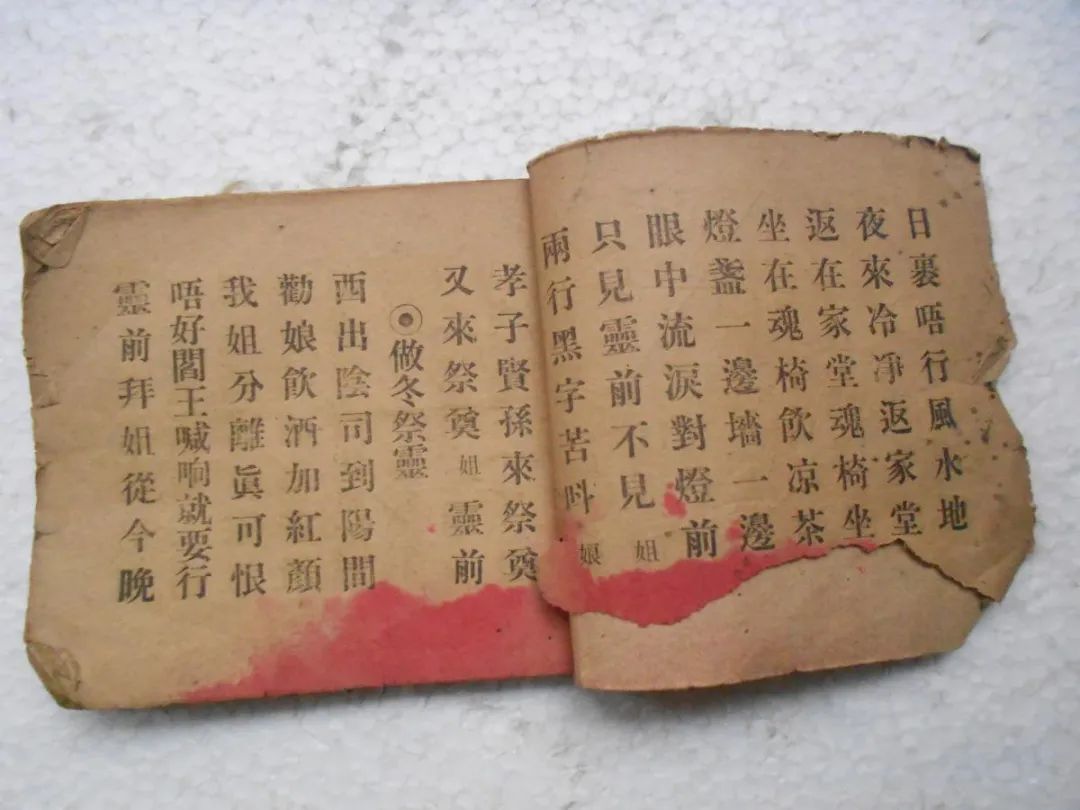 日裏唔行風水地
夜來冷淨返家堂
返在家堂魂椅坐
坐在魂椅飲凉茶
燈盞一邊墻一邊
眼中流淚對燈前
只見靈前不見姐
兩行黑字苦呌娘
孝子賢孫來祭奠
又來祭奠姐靈前
◉做冬祭靈
西出陰司到陽間
勸娘飲酒加紅顏
我姐分離眞可恨
唔好閻王喊响就要行
靈前拜姐從今晚